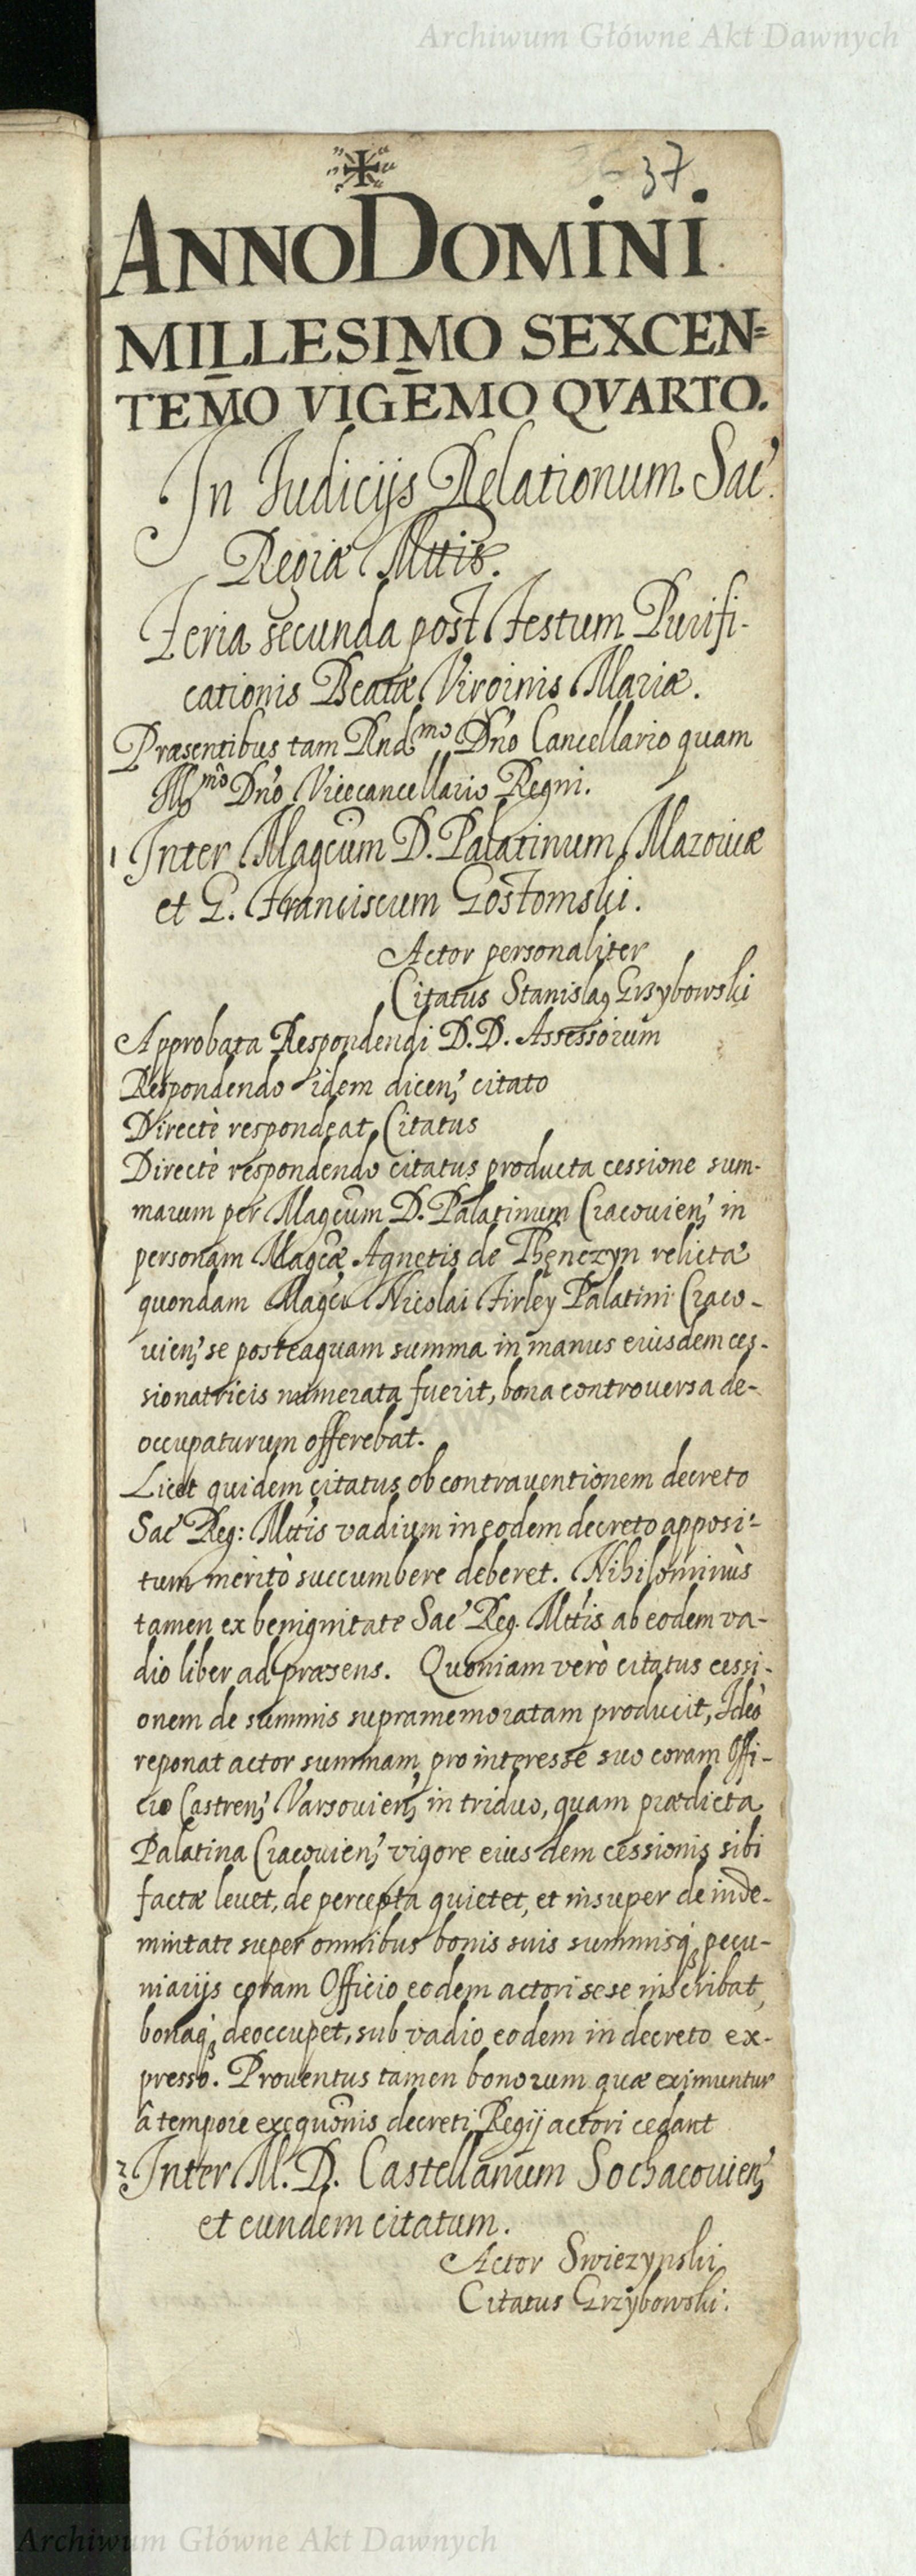 Archiwum Główne Akt Dawnych
37
ANNO DOMINI
MILLESIMO SEXCEN=
TEM̄O VIGĒMO QVARTO.
In Iudicijs Relationum Sac̃.
Regiæ Mttis.
Feria secunda post Festum Purifi-
cationis Beatæ Virginis Mariæ.
Præsentibus tam Rnd^mo Dño Cancellario quam
Ill^mo Dño Vicecancellario Regni.
1 Inter Magcum D. Palatinum Mazouiæ
et G. Franciscum Gostomski.
Actor personaliter
Citatus Stanislaꝰ Grzybowski
Approbata Respondendi D.D. Assessorum
Respondendo idem dicenʒ citato
Directè respondeat Citatus
Directè respondendo citatus producta cessione sum-
marum per Magcum D. Palatinum Cracouienʒ in
personam Magcæ Agnetis de Thęnczyn relictæ
quondam Magci Nicolai Firley Palatini Craco-
uienʒ se posteaquam summa in manus eiusdem ces-
sionatricis numerata fuerit, bona controuersa de-
occupaturum offerebat.
Licet quidem citatus ob contrauentionem decreto
Sac̃ Reg: Mttis vadium in eodem decreto apposi-
tum meritò succumbere deberet. Nihilominùs
tamen ex benignitate Sac̃ Reg. Mttis ab eodem va-
dio liber ad præsens. Quoniam verò citatus cessi-
onem de summis supramemoratam producit, Ideò
reponat actor summam pro interesse suo coram Offi-
cio Castrenʒ Varsouienʒ in triduo, quam prædicta
Palatina Cracouienʒ vigore eiusdem cessionis sibi
factæ leuet, de percepta quietet, et insuper de inde-
mnitate super omnibus bonis suis summisqꝫ pecu-
niarijs coram Officio eodem actori sese inscribat,
bonaqꝫ deoccupet, sub vadio eodem in decreto ex-
presso. Prouentus tamen bonorum quæ eximuntur
â tempore exequõnis decreti Regij actori cedant
2 Inter M. D. Castellanum Sochacouienʒ
et eundem citatum.
Actor Swiezynski
Citatus Grzybowski.
Archiwum Główne Akt Dawnych